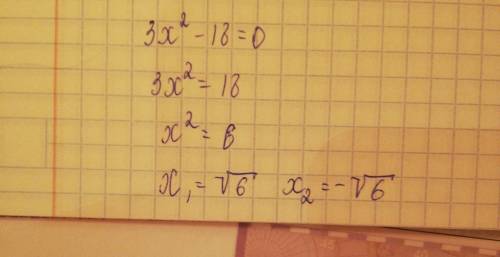 3x² - 18 = 0
3x² = 18
x² = 6
x₁ = √6 x₂ = -√6